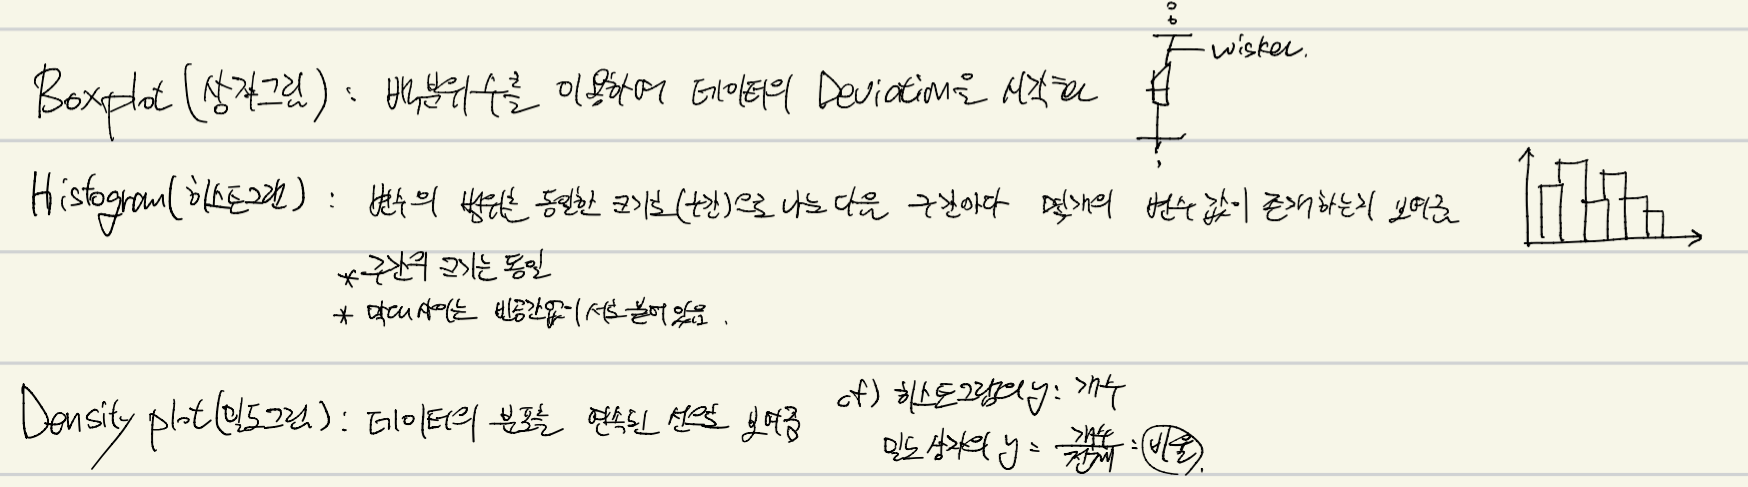 wisker.
Boxplot (상자그림) : 백분위수를 이용하여 데이터의 Deviation을 시각화
Histogram(히스토그램) : 변수의 범위를 동일한 크기로(구간)으로 나눈 다음 구간마다 몇개의 변수 값이 존재하는지 보여줌
* 구간의 크기는 동일
* 막대 사이는 빈공간없이 서로 붙어 있음.
cf) 히스토그램의 y : 개수
Density plot(밀도그림) : 데이터의 분포를 연속된 선으로 보여줌
밀도 상자의 y = 개수/전체 : 비율.